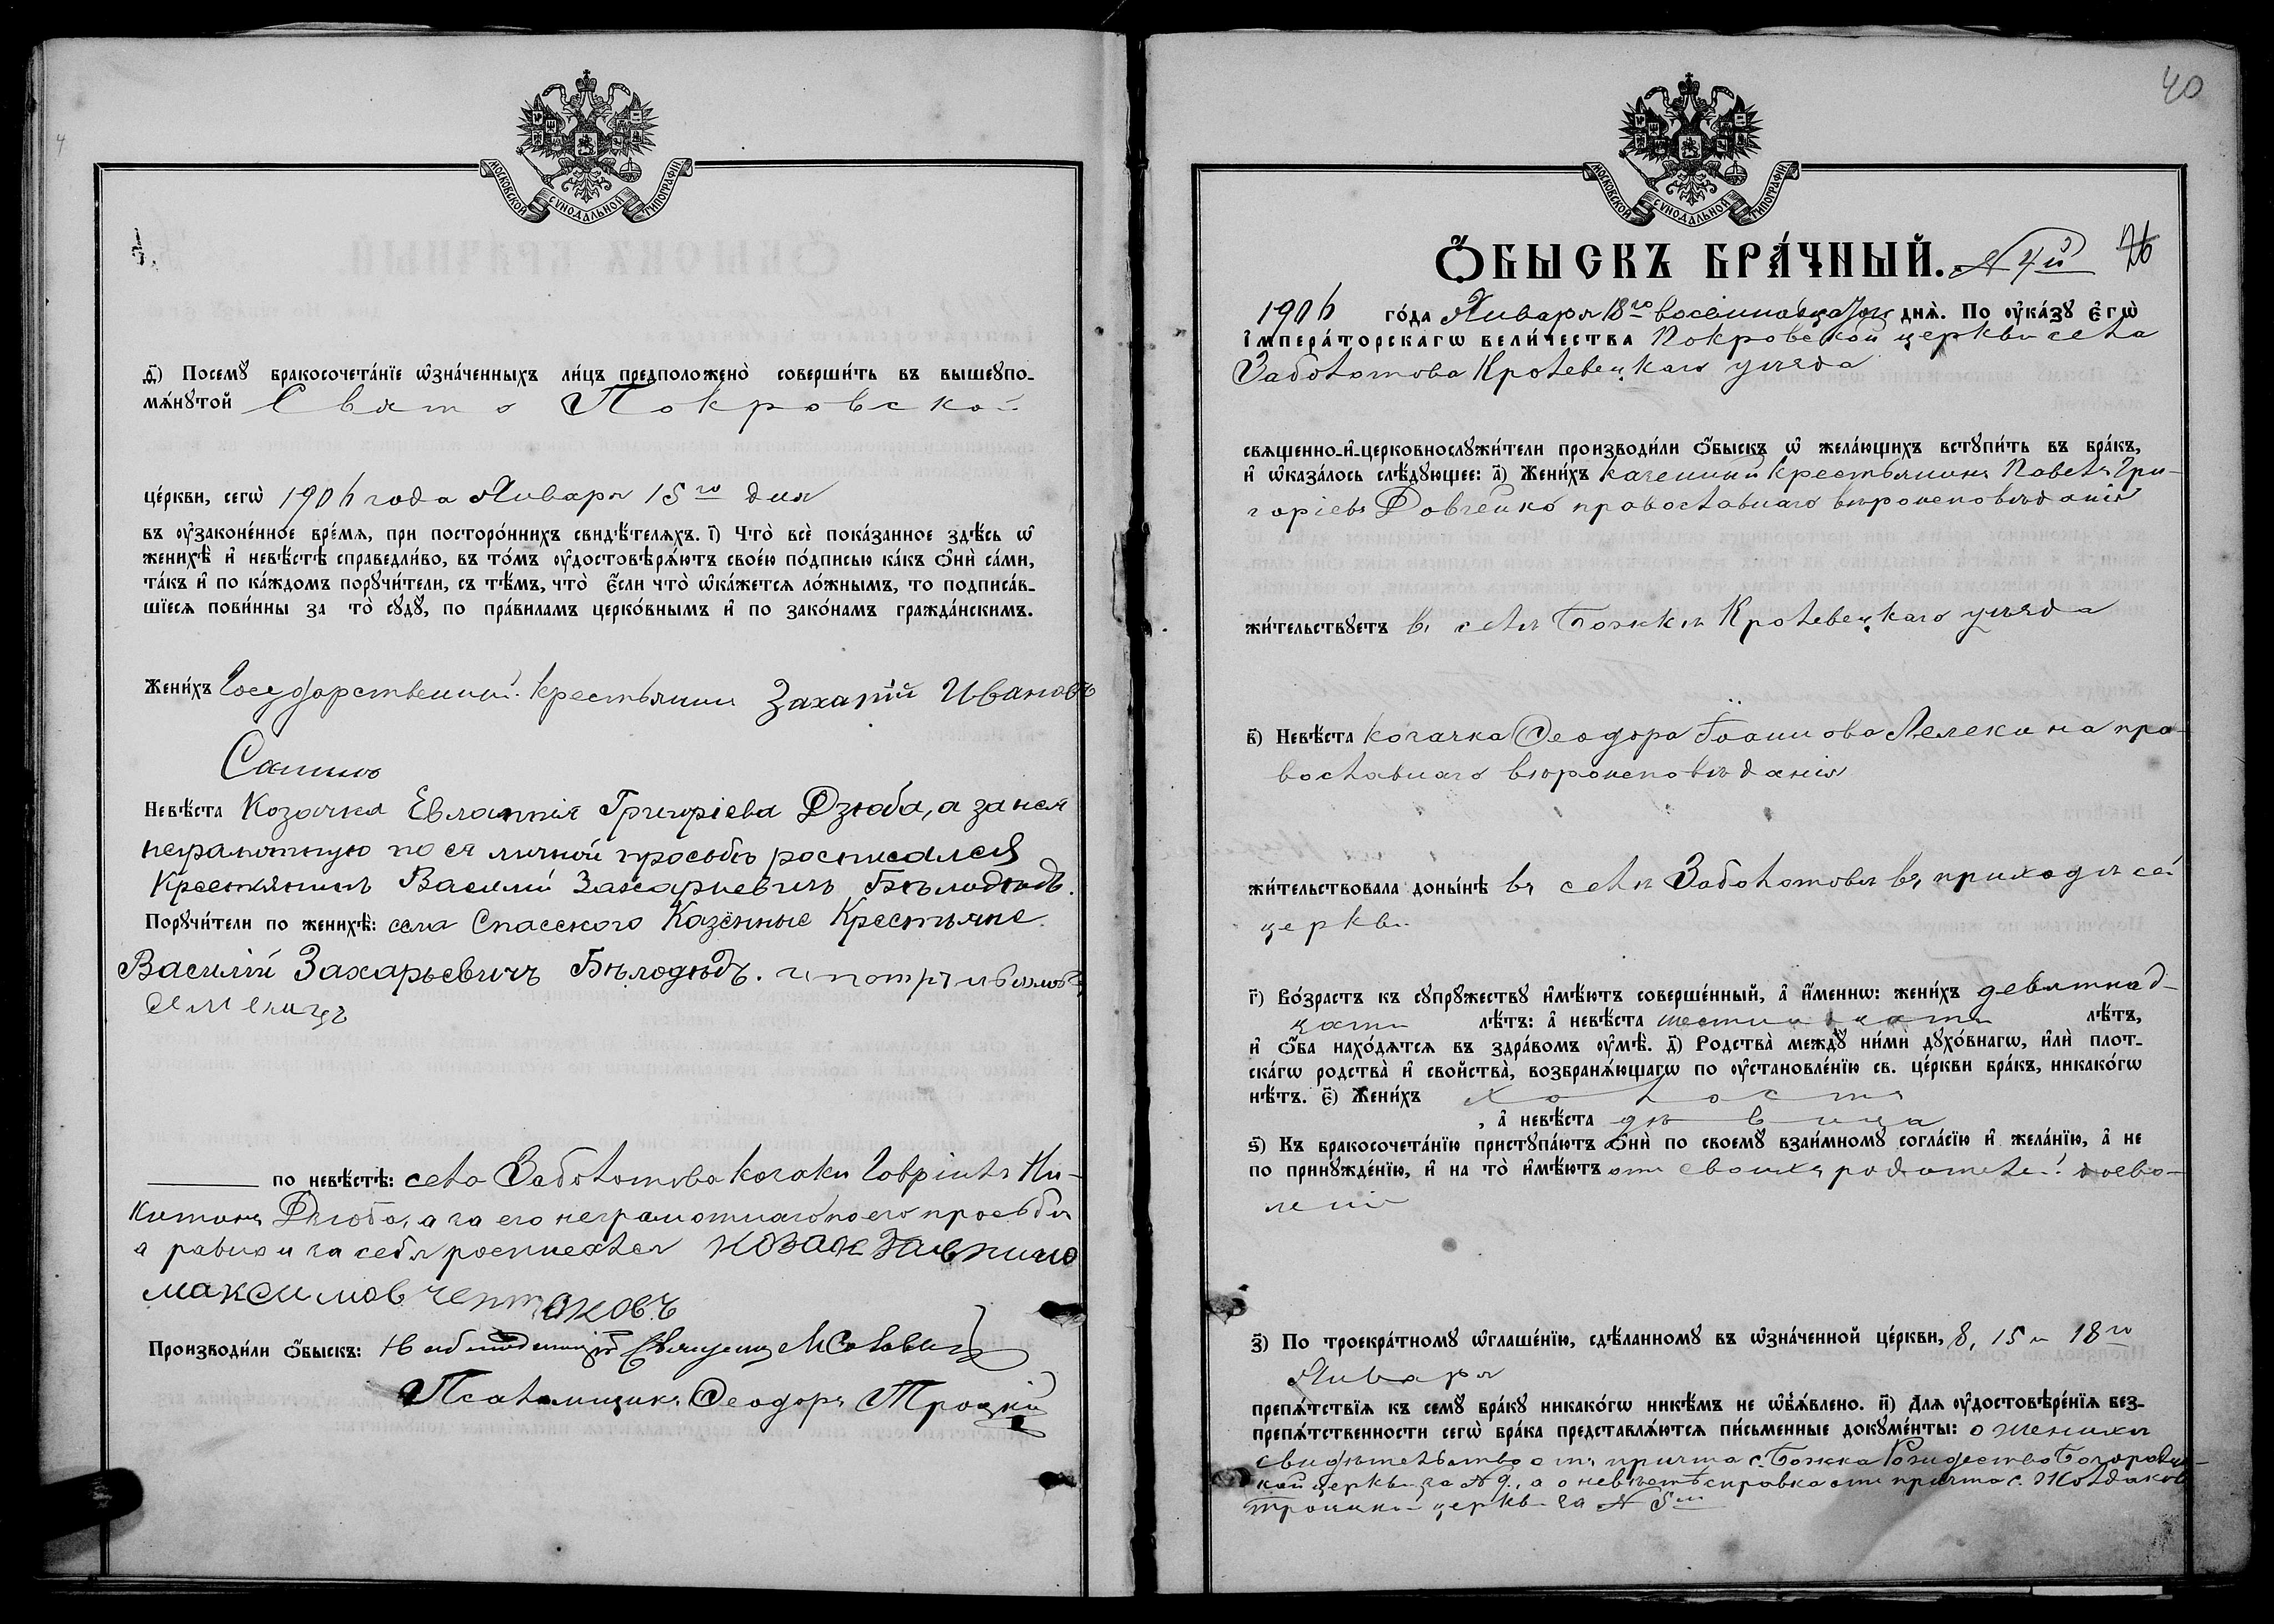 4
МОСКОВСКОЙ СѴНОДАЛЬНОЙ ТИПОГРАФІИ.
д҃) Посемꙋ бракосочета́нїе ѡ҆зна́ченныхъ ли́цъ предположено̀ соверши́ть въ вышеꙋпо-
мѧ́нꙋтой Свято Покровской
це́ркви, сегѡ̀ 1906 года Января 15го дня
въ ᲂу҆законе́нное вре́мѧ, при посторо́ннихъ свидѣ́телѧхъ. і҃) Что̀ всѐ пока́занное здѣ́сь ѡ҆
женихѣ̀ и҆ невѣ́стѣ справедли́во, въ то́мъ ᲂу҆достовѣрѧ́ютъ свое́ю по́дписью ка́къ ѻ҆нѝ са́ми,
та́къ и҆ по ка́ждомъ порꙋчи́тели, съ тѣ́мъ, что̀ є҆́сли что̀ ѡ҆ка́жетсѧ ло́жнымъ, то подписа́в-
шїесѧ пови́нны за то̀ сꙋдꙋ̀, по пра́виламъ церко́внымъ и҆ по зако́намъ гражда́нскимъ.
Жени́хъ Государственный крестьянинъ Захарій Ивановъ
Невѣ́ста Козачка Евлампія Григоріева Дзюба, а за нея
неграмотную по ея личной просьбѣ росписался
Крестянинъ Василій Захариевичъ Бѣлодѣдъ.
Порꙋчи́тели по женихѣ̀: села Спаского Казённые Крестьяне
Василій Захарьевичъ Бѣлодѣдъ. и
по невѣ́стѣ: села Заболотова козаки Гавріилъ Ни-
китинъ Дзюба, а за его неграмотнаго по его просьбѣ
а равно и за себя росписался козак
максимов
Производи́ли ѻ҆́быскъ: Священ. М
Псаломщикъ Ѳеодоръ Троцкій
40
МОСКОВСКОЙ СѴНОДАЛЬНОЙ ТИПОГРАФІИ.
Ѻ҆БЫСКЪ БРА́ЧНЫЙ. N 4й 26
1906 го́да Января 18го восемнадцатого днѧ̀. По ᲂу҆ка́зꙋ є҆гѡ̀
і҆мпера́торскагѡ вели́чества Покровской церкви села
Заболотова Кролевецкаго уѣзда
свѧщенно-и҆-церковнослꙋжи́тели производи́ли ѻ҆́быскъ ѡ҆ жела́ющихъ встꙋпи́ть въ бра́къ,
и҆ ѡ҆каза́лось слѣ́дꙋющее: а҃) Жени́хъ казенный крестьянинъ Павелъ Гри-
горіевъ Довгенко православнаго вѣроисповѣданія
жи́тельствꙋетъ въ селѣ Божкѣ Кролевецкаго уѣзда
в҃) Невѣ́ста козачка Ѳеодора Іоаннова Лелекина пра-
вославнаго вѣроисповѣданія
жи́тельствовала доны́нѣ въ селѣ Заболотовѣ въ приходѣ сей
церкви
г҃) Во́зрастъ къ сꙋпрꙋ́жествꙋ и҆мѣ́ютъ соверше́нный, а҆ и҆́меннѡ: жени́хъ девятнад-
цати лѣ́тъ: а҆ невѣ́ста шестнадцати лѣ́тъ,
и҆ ѻ҆́ба нахо́дѧтсѧ въ здра́вомъ ᲂу҆мѣ̀. д҃) Родства̀ междꙋ̀ ни́ми дꙋхо́внагѡ, и҆лѝ плот-
ска́гѡ родства̀ и҆ сво́йства, возбранѧ́ющагѡ по ᲂу҆становле́нїю св. це́ркви бра́къ, никако́гѡ
нѣ́тъ. є҃) Жени́хъ холостъ
, а҆ невѣ́ста дѣвица
ѕ҃) Къ бракосочета́нїю пристꙋпа́ютъ ѻ҆нѝ по своемꙋ̀ взаи́мномꙋ согла́сїю и҆ жела́нїю, а҆ не
по принꙋжде́нїю, и҆ на то̀ и҆мѣ́ютъ отъ своихъ родителей дозво-
леніе
з҃) По троекра́тномꙋ ѡ҆глаше́нїю, сдѣ́ланномꙋ въ ѡ҆зна́ченной це́ркви, 8, 15 и 18го
Января
препѧ́тствїѧ къ семꙋ̀ бра́кꙋ никако́гѡ никѣ́мъ не ѡ҆б̾ѧ́влено. и҃) Длѧ ᲂу҆достовѣре́нїѧ без-
препѧ́тственности сегѡ̀ бра́ка представлѧ́ютсѧ пи́сьменные докꙋме́нты: о женихѣ
свидѣтельство отъ причта с. Божка Рождество Богородич-
ной церкви за N 9, а о невѣстѣ справка отъ причта с. Жолдаков
троицкой церкви за N 5м